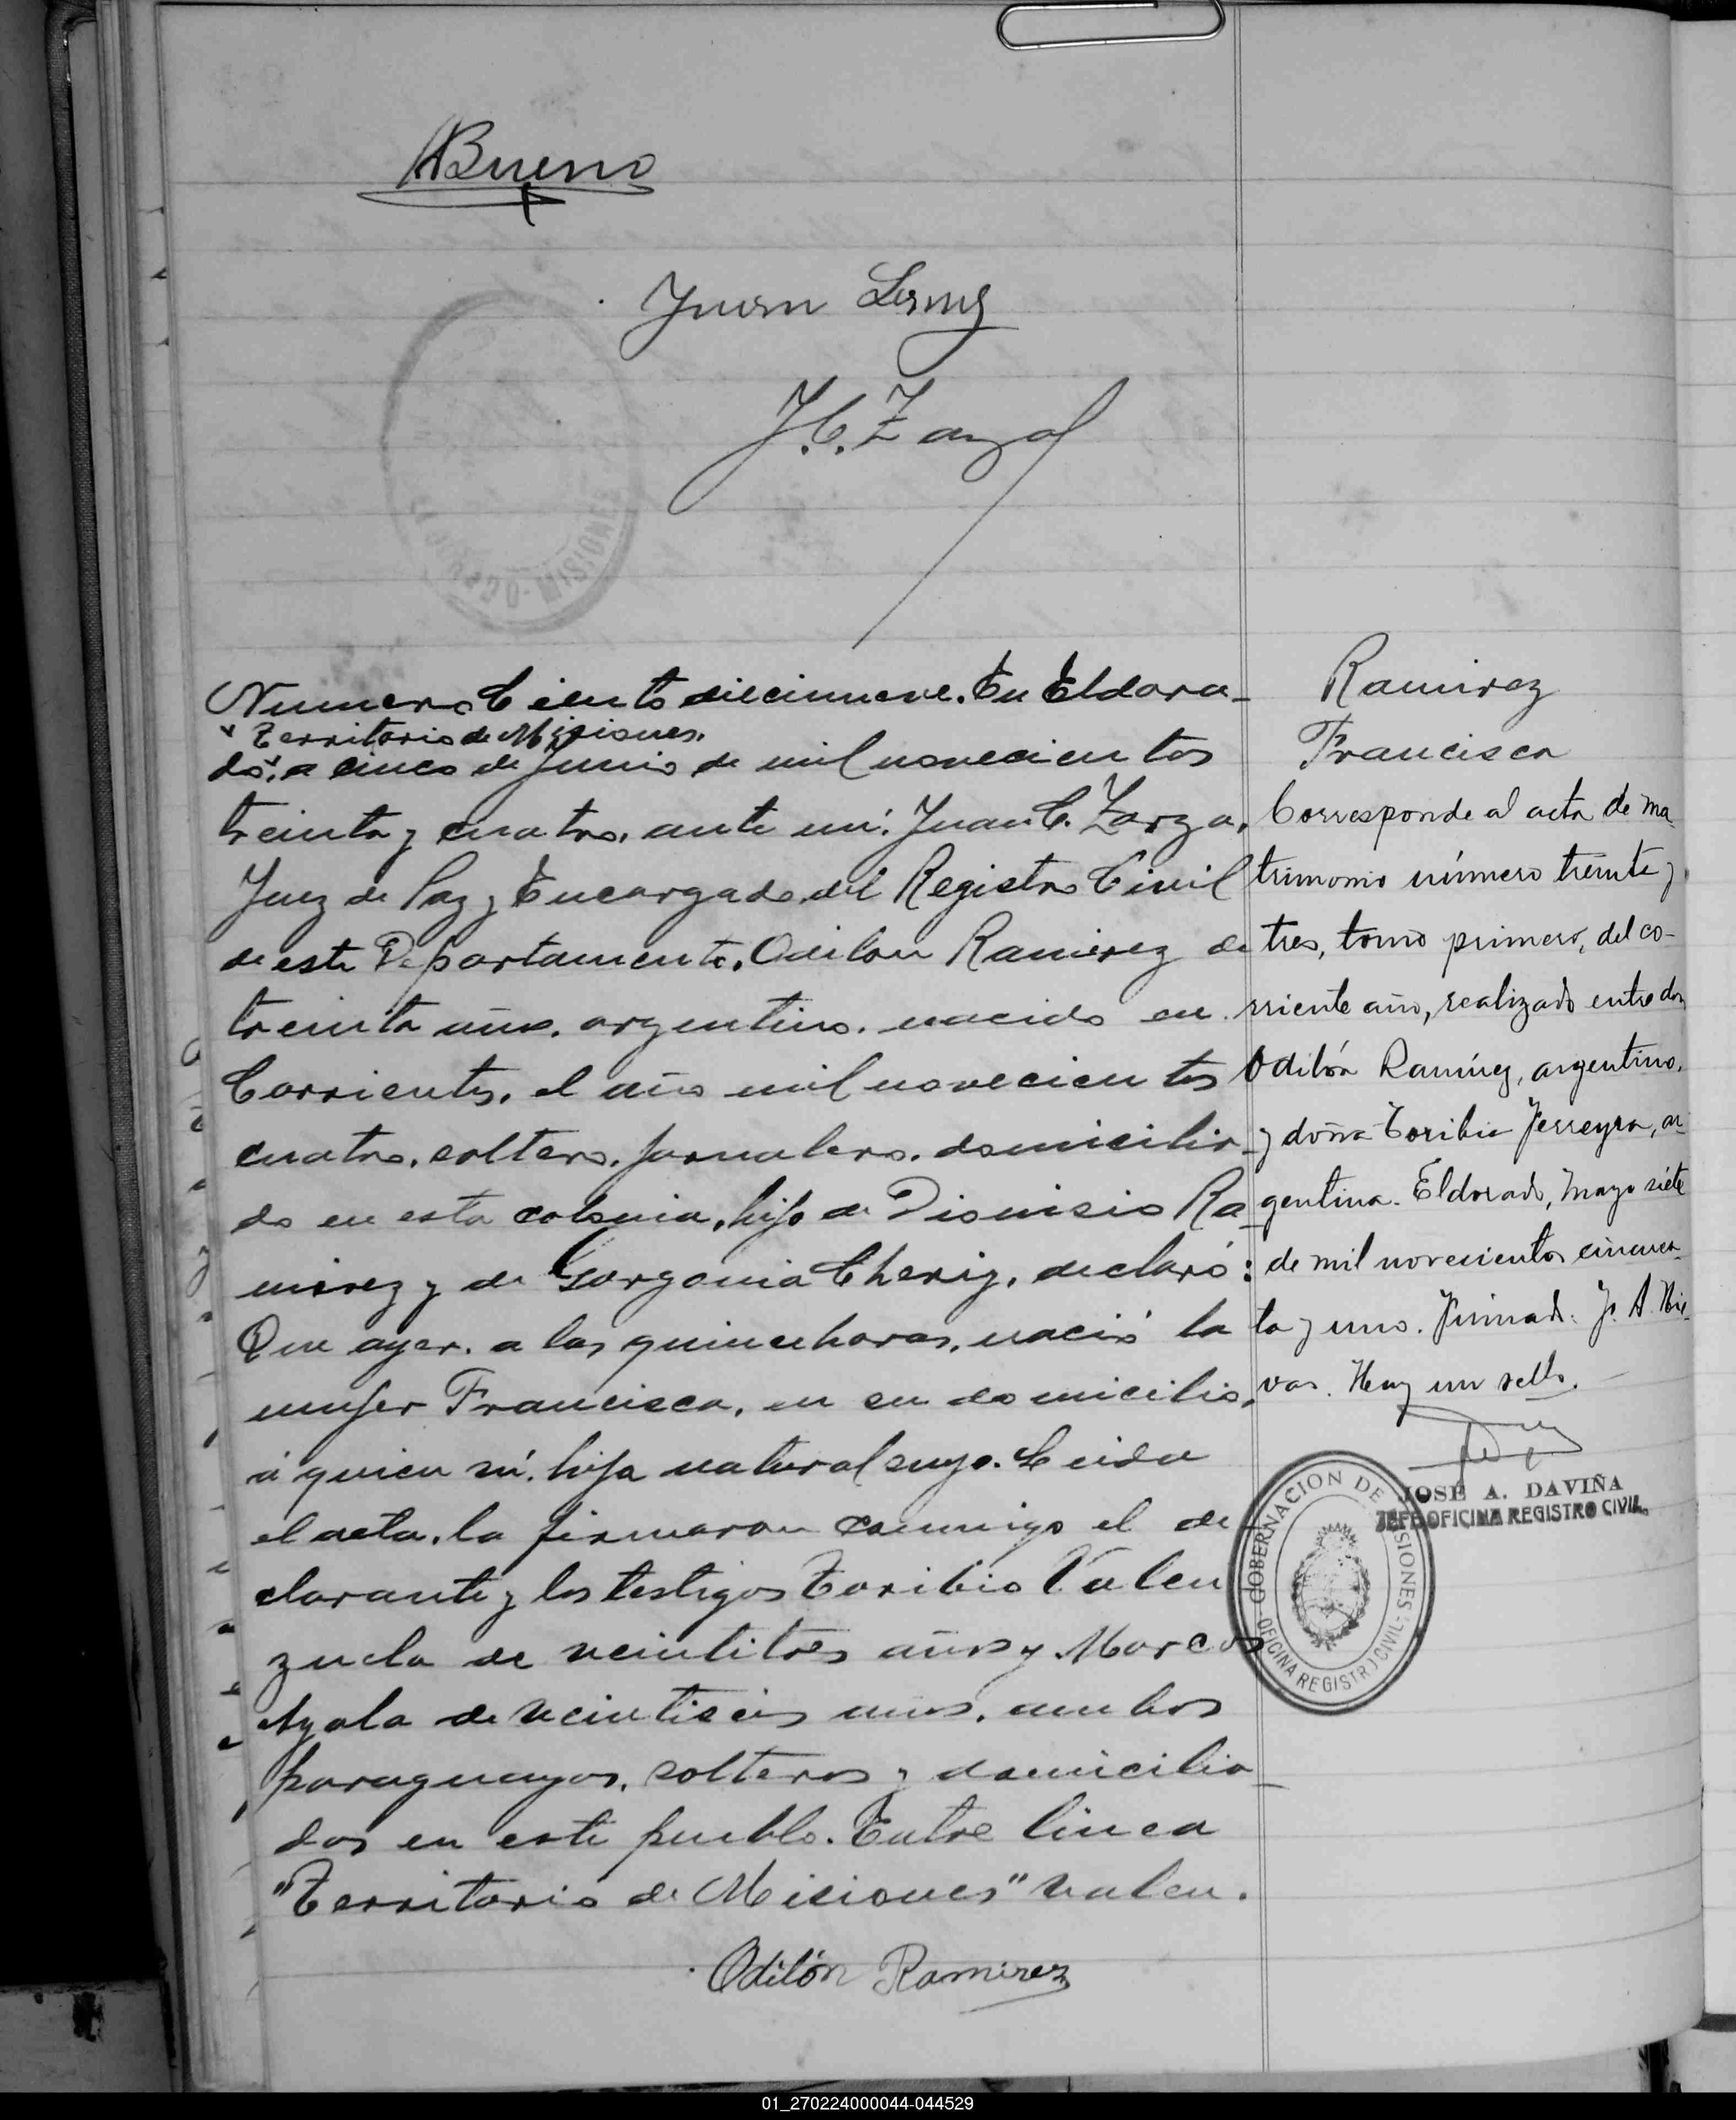 Bueno
Juan
J. C. Zarza
Numero Ciento diecinueve. En Eldora-
Territorio de Misiones.
do, a cinco de Junio de mil novecientos
treinta y cuatro, ante mí: Juan C. Zarza,
Juez de Paz y Encargado del Registro Civil
de este Departamento, Odilon Ramirez de
treinta años, argentino, nacido en
Corrientes, el año mil novecientos
cuatro, soltero, jornalero, domicilia-
do en esta colonia, hijo de Dionisio Ra-
mirez y de Gorgonia declaró:
Que ayer, a las quince horas, nació la
mujer Francisca, en su domicilio,
á quien hija natural suya. Leida
el acta, la firmaron conmigo el de-
clarante y los testigos Toribio Valen
zuela de veintitres años y Marcos
Ayala de veintiseis años, ambos
paraguayos, solteros y domicilia-
dos en este pueblo. Entre linea
"Territorio de Misiones" valen.
Odilón Ramirez
Ramirez
Francisca
Corresponde al acta de ma-
trimonio número treinta y
tres, tomo primero, del co-
rriente año, realizado entre don
Odilón Ramírez, argentino,
y doña Toribia Ferreyra, ar-
gentina. Eldorado, Mayo siete
de mil novecientos cincuen-
ta y uno. Firmado: J. A.
vas. Hay un sello.
JOSÉ A. DAVIÑA
JEFE OFICINA REGISTRO CIVIL
GOBERNACION DE MISIONES
OFICINA REGISTRO CIVIL
01_270224000044-044529